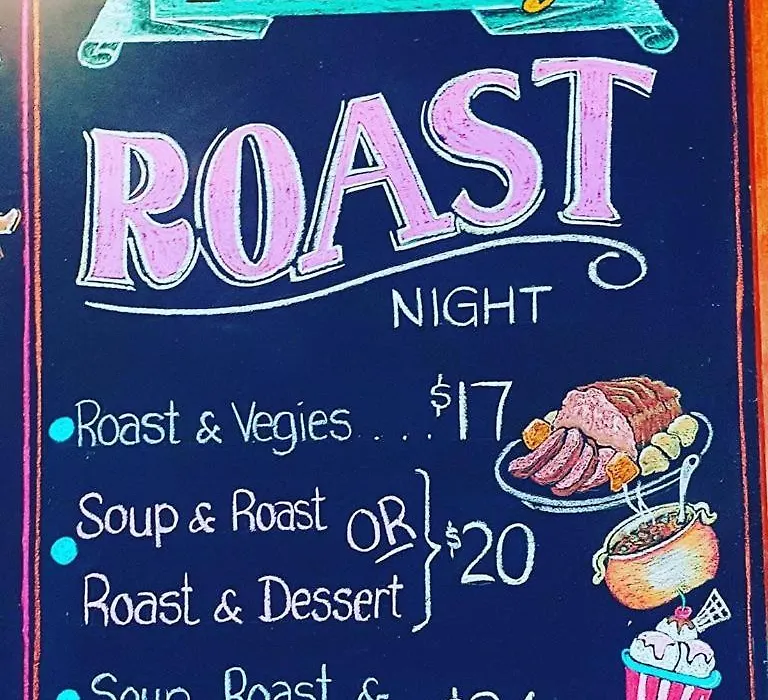 ROAST
NIGHT
Roast & Vegies .... $17
Soup & Roast OR
Roast & Dessert } $20
Soup, Roast &